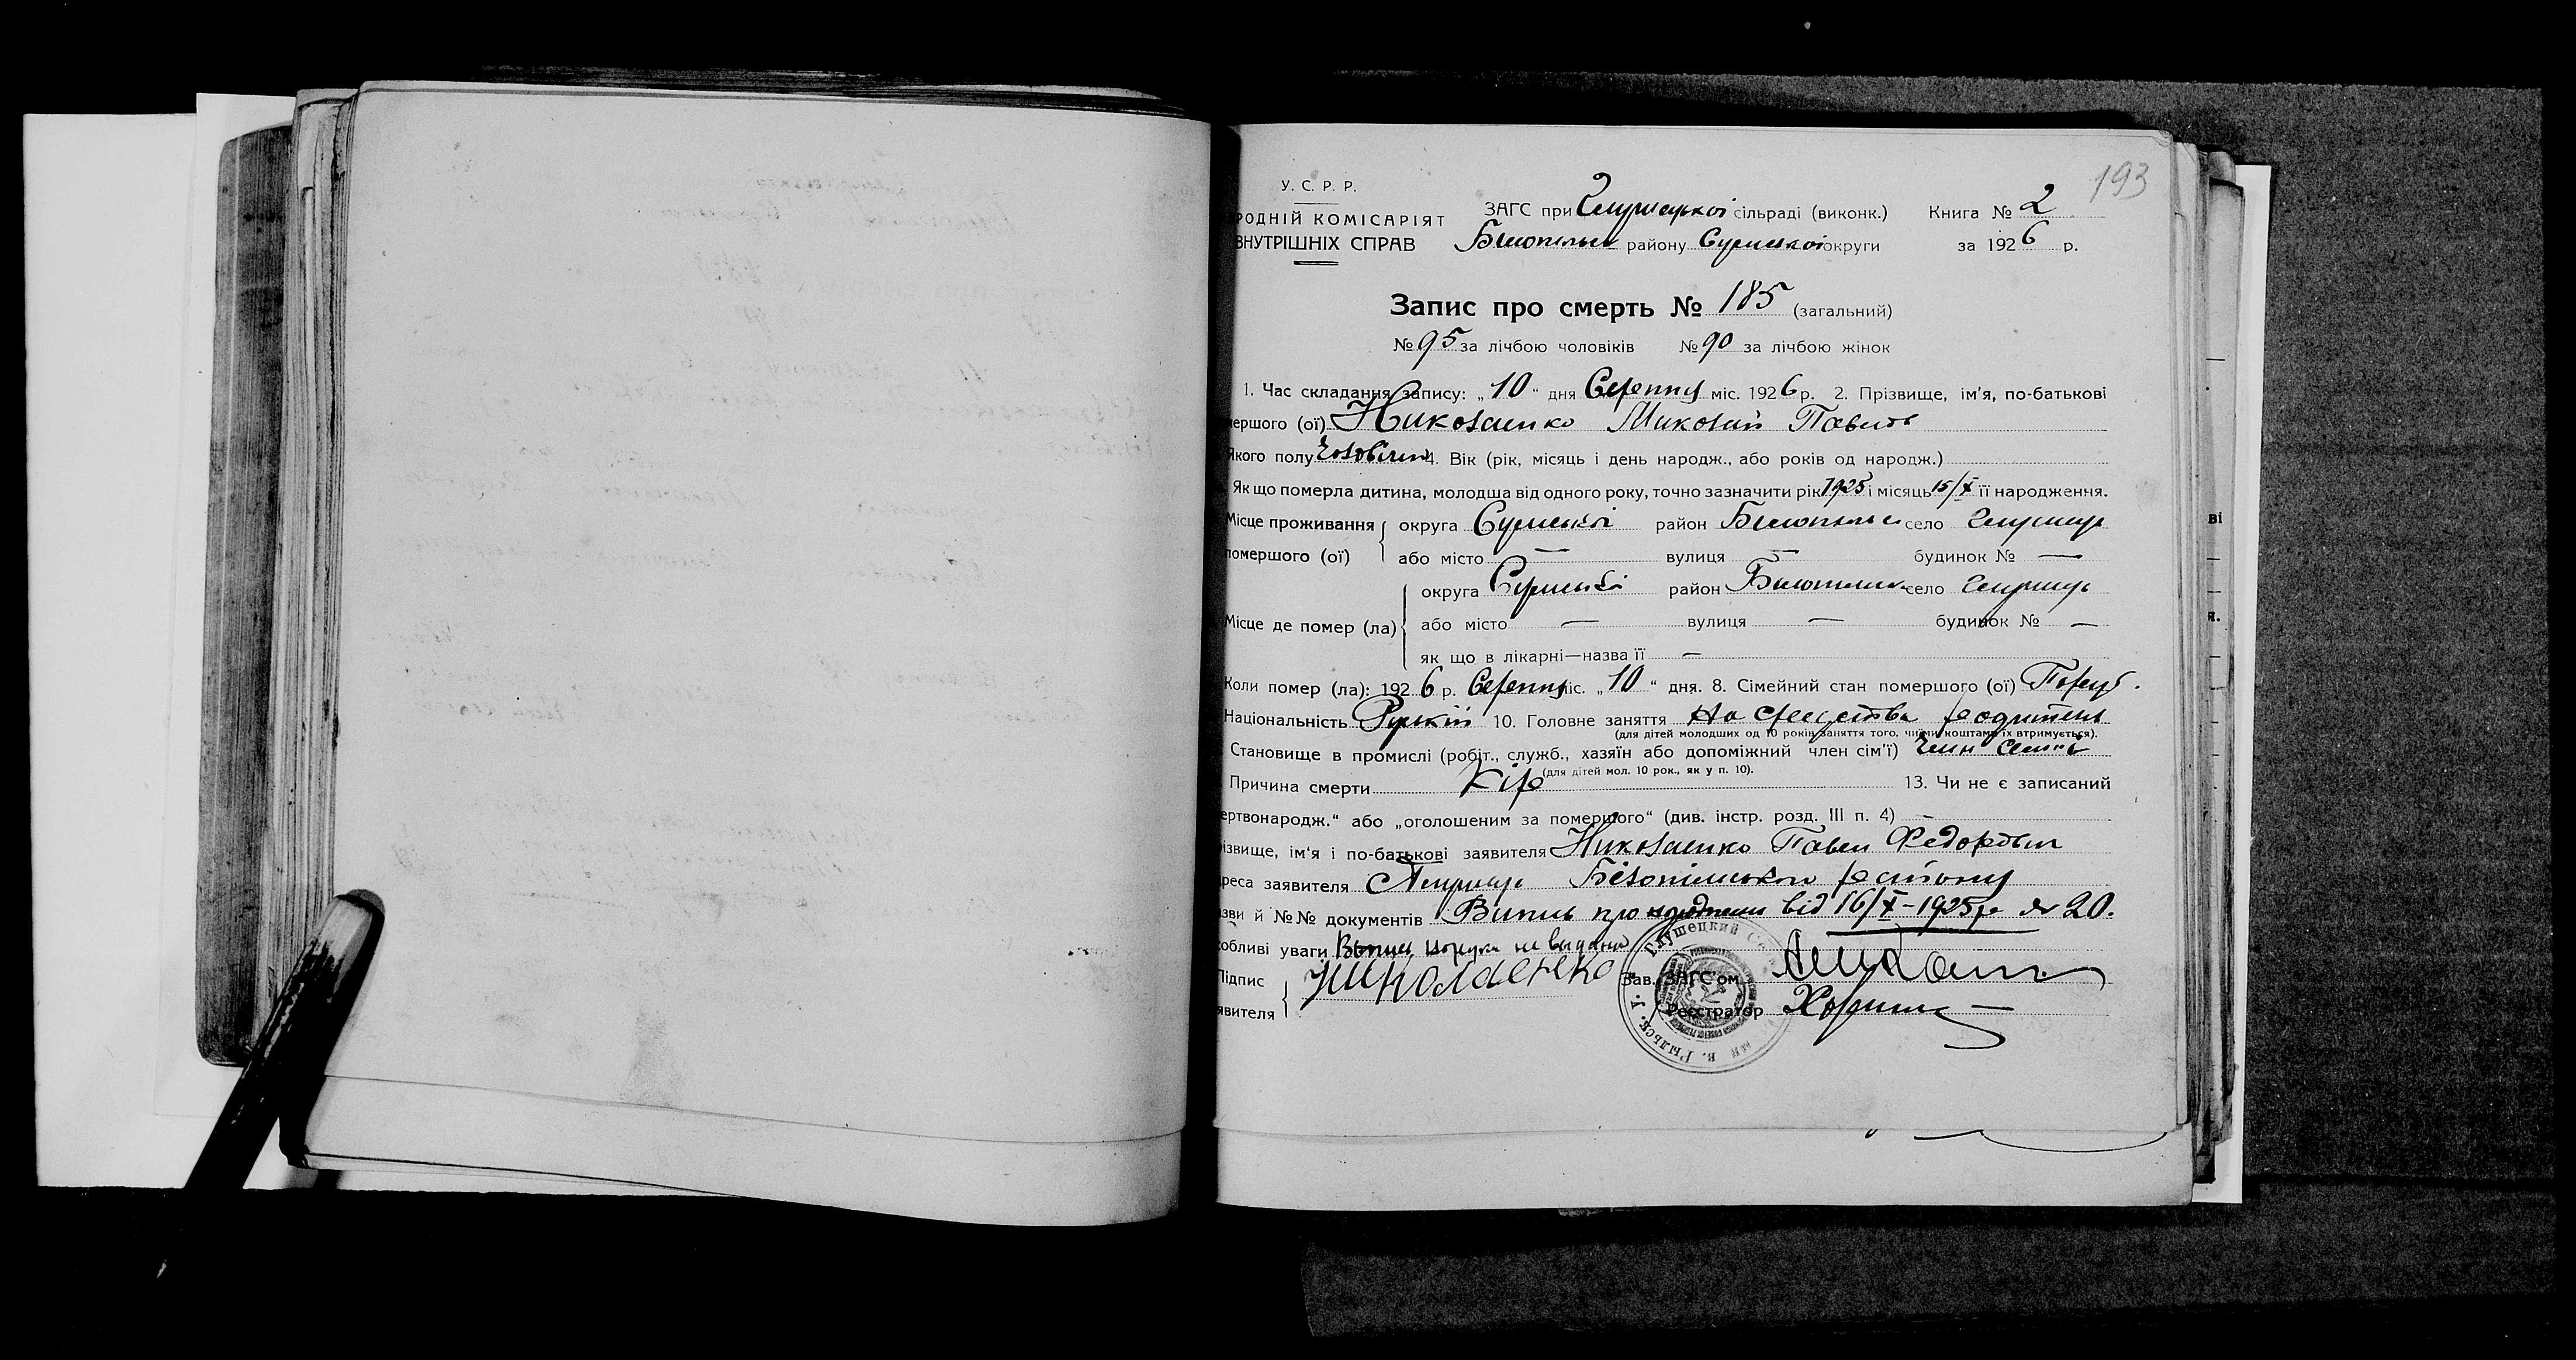 193
У. С. Р. Р.
РОДНІЙ КОМІСАРІЯТ
ВНУТРІШНІХ СПРАВ
ЗАГС при Глушецької сільраді (виконк.) Книга № 2
Білопільск району Сумської округи за 1926 р.
Запис про смерть № 185 (загальний)
№ 95 за лічбою чоловіків № 90 за лічбою жінок
1. Час складання запису: „10“ дня Серпня міс. 1926 р. 2. Прізвище, ім'я, по-батькові
мершого (ої) Николаенко Миколай Павлов
якого полу 4. Вік (рік, місяць і день народж., або років од народж.)
Як що померла дитина, молодша від одного року, точно зазначити рік 1925 і місяць 15/X її народження.
Місце проживання округа Сумської район село Глушець
помершого (ої) або місто — вулиця — будинок № —
округа Сумської район село Глушець
Місце де помер (ла) або місто — вулиця — будинок № —
як що в лікарні—назва її —
Коли помер (ла): 1926 р. Серпня міс. „10“ дня. 8. Сімейний стан помершого (ої)
Національність Руський 10. Головне заняття На средства родитель
(для дітей молодших од 10 років заняття того, чиїми коштами їх втримується).
Становище в промислі (робіт., служб., хазяїн або допоміжний член сім'ї) член семьи
(для дітей мол. 10 рок., як у п. 10).
Причина смерти Кір 13. Чи не є записаний
ертвонародж.“ або „оголошеним за помершого“ (див. інстр. розд. III п. 4) —
ізвище, ім'я і по-батькові заявителя Николаенко Павел Федорович
реса заявителя Глушець Білопільского району
азви й №№ документів Випись про народження від 16/X-1925 р № 20.
обливі уваги не выдана
Підпис
явителя
Николаенко
Зав. ЗАГС'ом
Реєстратор
Глушецкий
Рыльск. у.